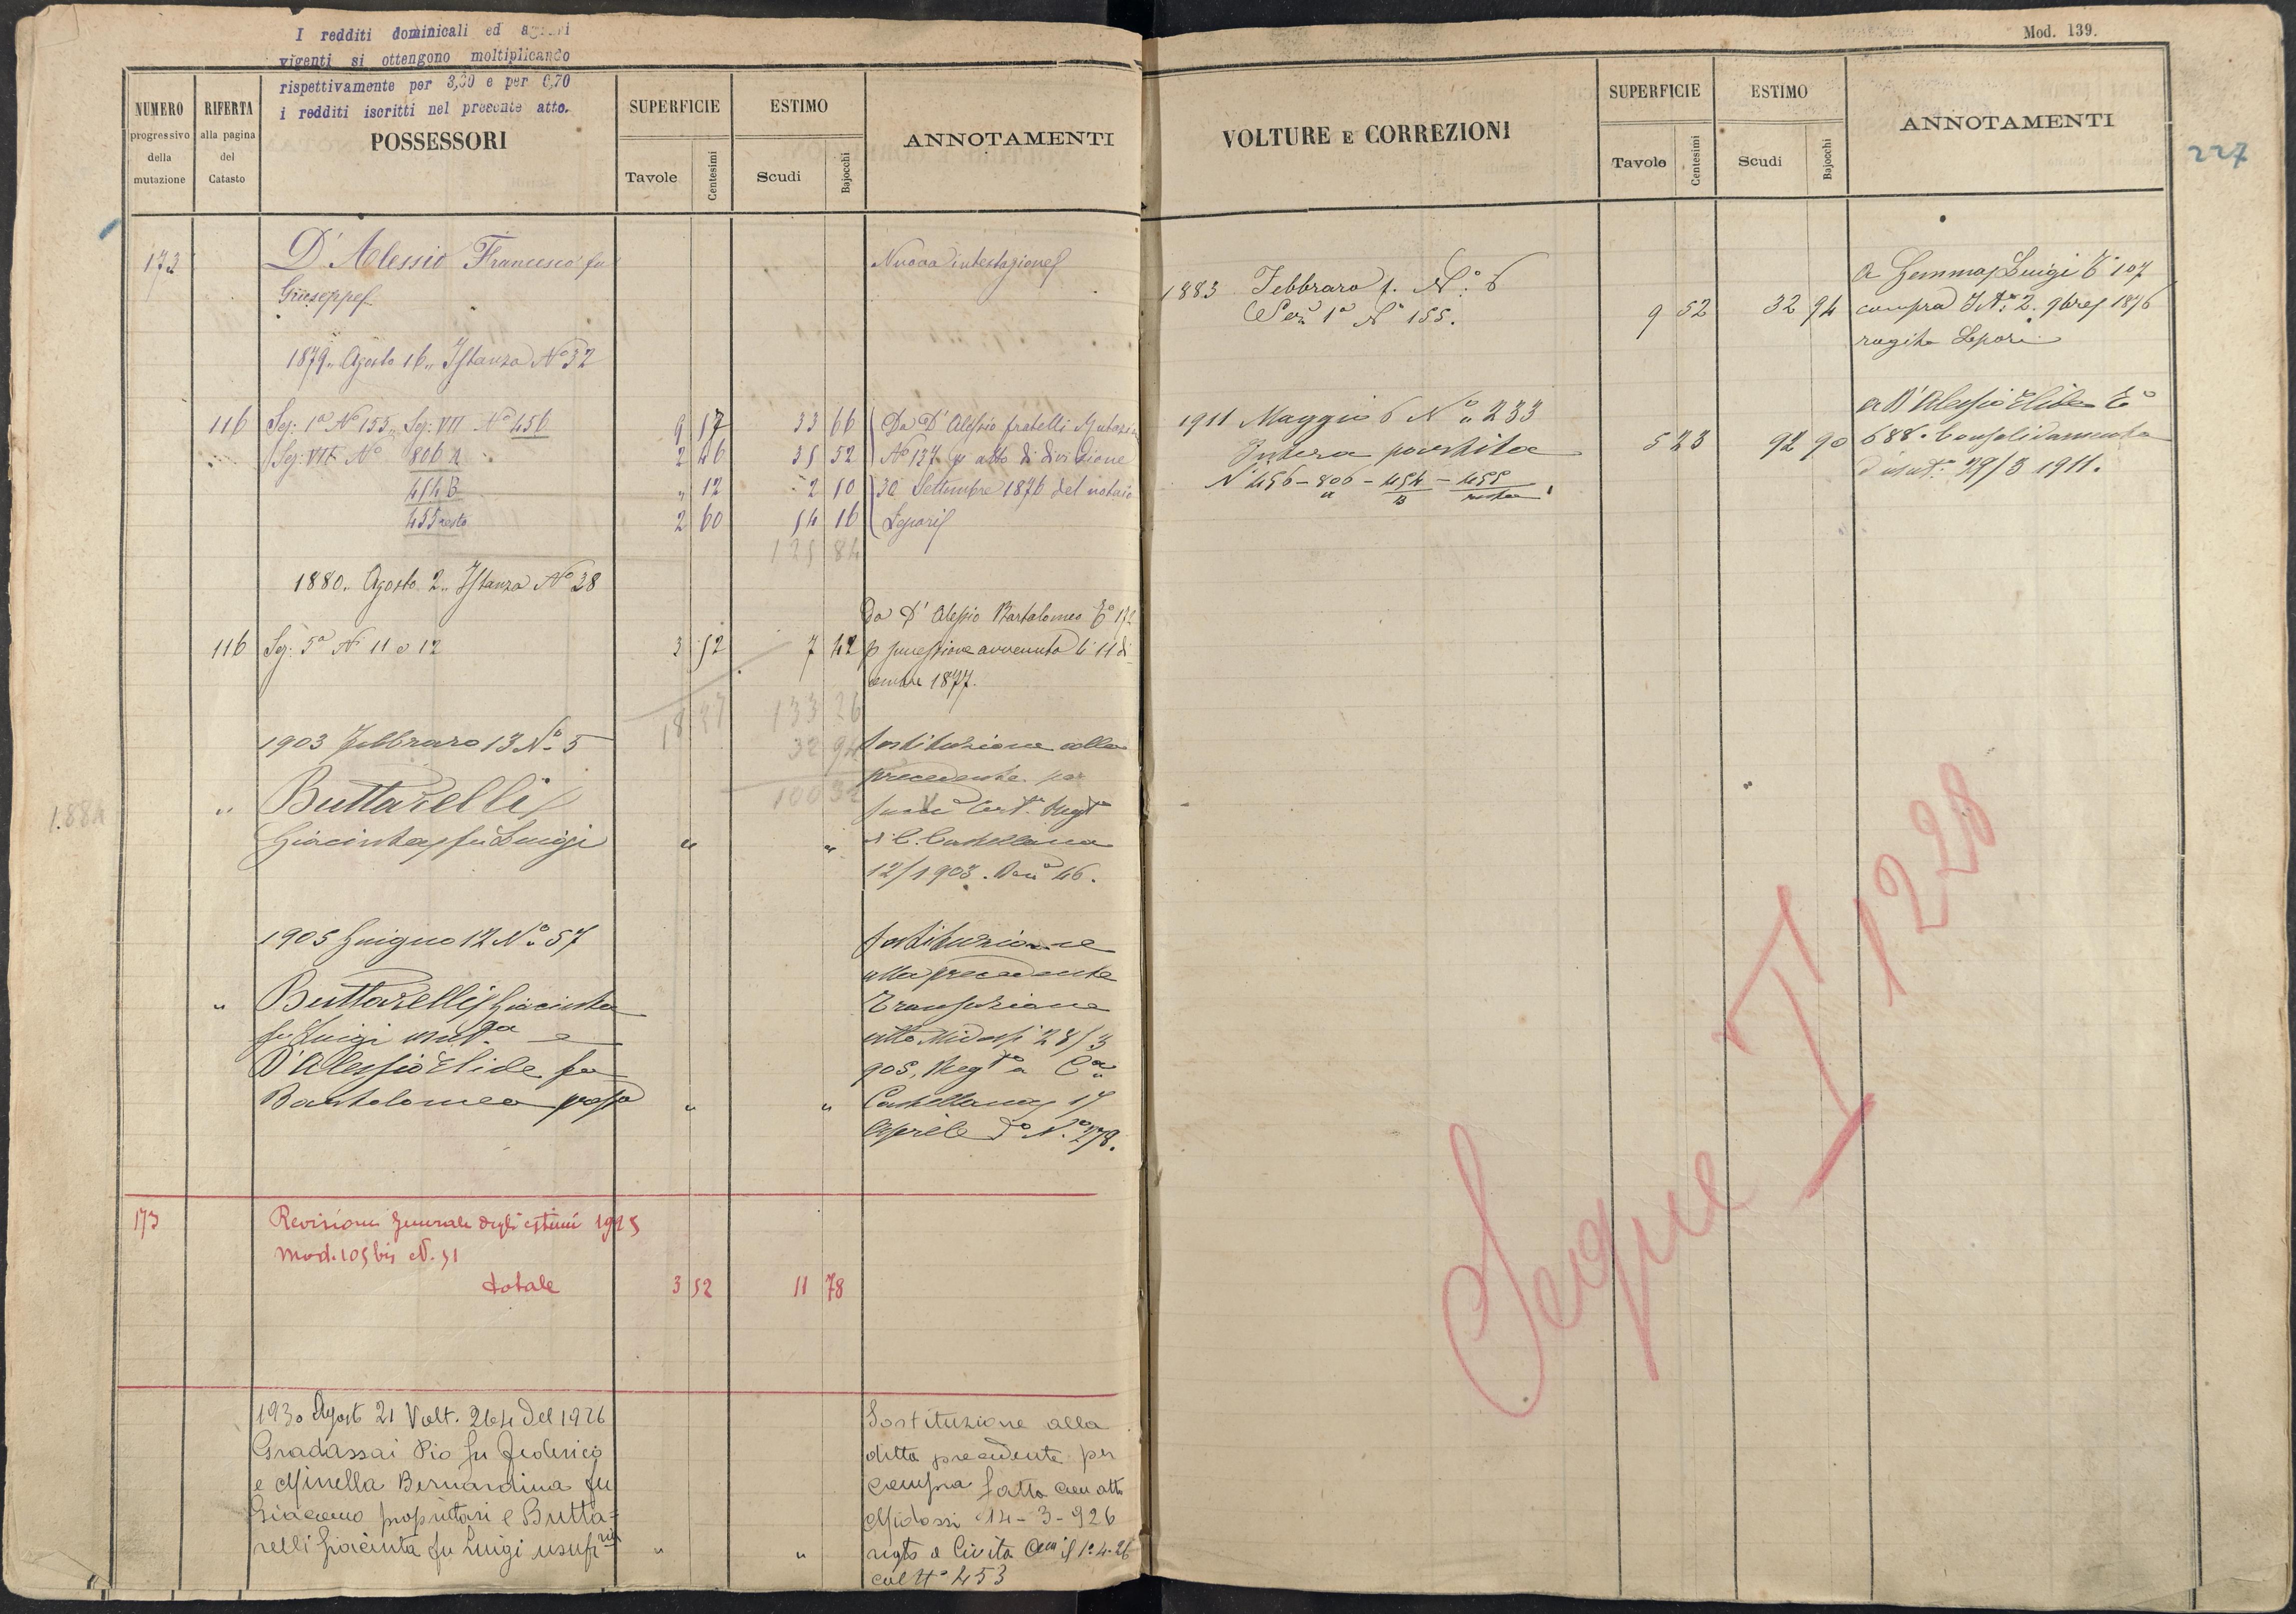 I redditi dominicali ed agrari
vigenti si ottengono moltiplicando
rispettivamente per 3,30 e per 0,70
i redditi iscritti nel presente atto.
NUMERO
progressivo
della
mutazione
RIFERTA
alla pagina
del
Catasto
POSSESSORI
SUPERFICIE
Tavole
Centesimi
ESTIMO
Scudi
Bajocchi
ANNOTAMENTI
173
D'Alessio Francesco fu
Giuseppe
Nuova intestazione
1879 „ Agosto 16 „ Istanza No 32
116 Sez: 1a No 155, Sez: VII No 456 9 17 33 66 Da D'Alessio fratelli Mutazion
Sez: VII No 806 a 2 46 35 52 No 137 p atto di divisione
454 B „ 12 2 10 30 Settembre 1876 del notaio
455 resto 2 60 54 16 Lepori
125 84
1880 „ Agosto 2 „ Istanza No 38
Da D'Alessio Bartolomeo To 172
116 Sez: 5a No 11 e 12 3 52 7 42 p successione avvenuta li 11 di
cembre 1877.
18 37 133 26
1903 Febbraro 13 No 5 32 94 Sostituzione alla
precedente per
100 32
1.884
„ Buttarelli
Cert. Regt
Giacinta fu Luigi „ „ a C. Castellana
12/1903. 46.
1905 Giugno 12 No 57 Sostituzione
alla precedente
„ Buttarelli Giacinta Transazione
fu Luigi usufta e atto Midossi 28/3
D'Alessio Elide fu 905, Regto a Ca
Bartolomeo propa „ „ Castellana 17
Aprile do No 278.
173 Revisione generale degli estimi 1925
Mod. 105 bis N. 51
totale 3 52 11 78
1930 Agosto 21 Volt. 264 del 1926 Sostituzione alla
Gradassai Pio fu Federico ditta precedente per
e Minella Bernardina fu compra fatta con atto
Giacomo proprietari e Butta= Midossi 14-3-926
relli Giacinta fu Luigi usufria „ „ regto a Civita Cna il 1-4-26
col No 453
Mod. 139.
227
VOLTURE E CORREZIONI
SUPERFICIE
Tavole
Centesimi
ESTIMO
Scudi
Bajocchi
ANNOTAMENTI
a Gemma Luigi To 107
1883 Febbraro 1. No 6
Sez 1a No 155. 9 52 32 94 compra 2. 9bre 1876
rogito Lepori
a D'Alessio Elide To
1911 Maggio 6 No 233
Intera partita 5 23 92 90 688. Consolidamento
No 456 - 806 a - 454 B - 455 resto
d'usuf. 29/3 1911.
Segue T 1228